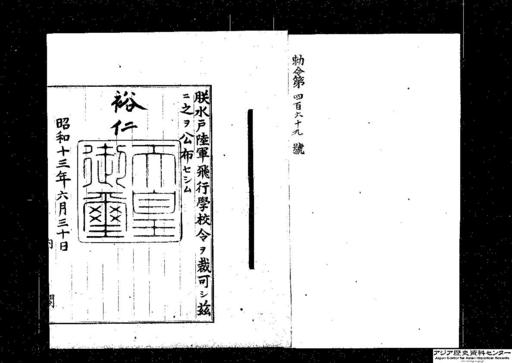 勅令第四百六十九號
朕水戸陸軍飛行學校令ヲ裁可シ茲
ニ之ヲ公布セシム
裕仁
天皇御璽
昭和十三年六月三十日
内閣
アジア歴史資料センター
Japan Center for Asian Historical Records